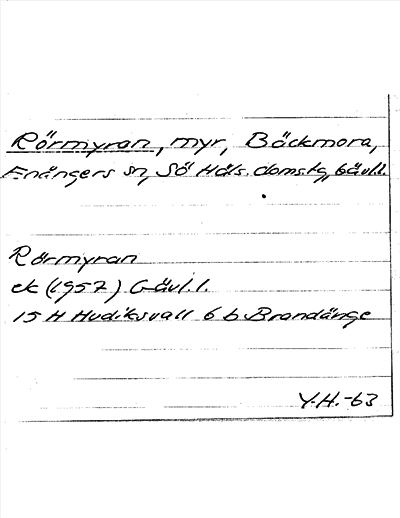 Rörmyran, myr, Bäckmora,
Enångers sn, Sö Häls. domstg, Gävl.l.
Rörmyran
ek (1957) Gävl.l.
15 H Hudiksvall 6 b Brandänge
Y.H.-63